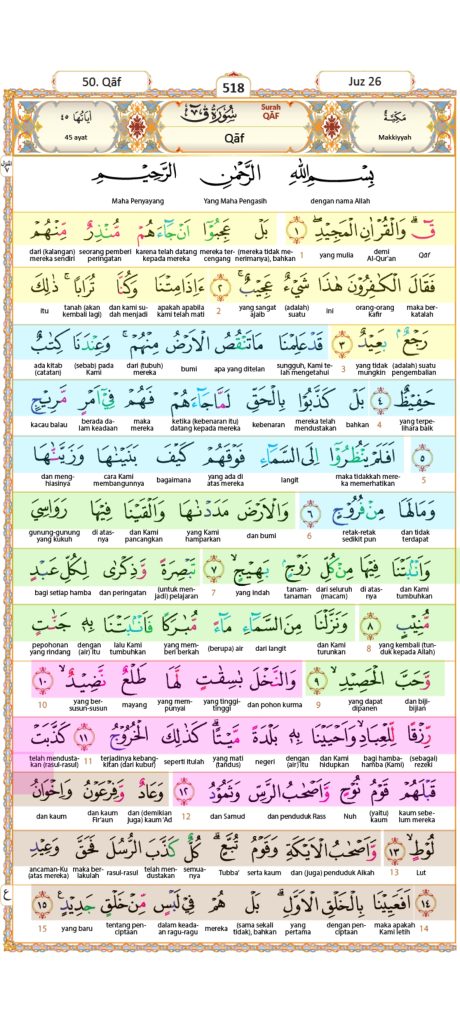 50. Qāf
518
Juz 26
اٰيَاتُهَا ٤٥
سُوْرَةُ قٓ
Surah QĀF
مَكِّيَّةٌ
45 ayat
Qāf
Makkiyyah
المنزل ٧
بِسْمِ اللّٰهِ الرَّحْمٰنِ الرَّحِيْمِ
dengan nama Allah Yang Maha Pengasih Maha Penyayang
قۤ ۗ وَالْقُرْاٰنِ الْمَجِيْدِ ۖ ١ بَلْ عَجِبُوْٓا اَنْ جَاۤءَهُمْ مُّنْذِرٌ مِّنْهُمْ
Qāf demi Al-Qur'an yang mulia 1 (mereka tidak menerimanya), bahkan mereka tercengang karena telah datang kepada mereka seorang pemberi peringatan dari (kalangan) mereka sendiri
فَقَالَ الْكٰفِرُوْنَ هٰذَا شَيْءٌ عَجِيْبٌ ۚ ٢ ءَاِذَا مِتْنَا وَكُنَّا تُرَابًا ۚ ذٰلِكَ
maka berkatalah orang-orang kafir ini (adalah) suatu yang sangat ajaib 2 apakah apabila kami telah mati dan kami sudah menjadi tanah (akan kembali lagi) itu
رَجْعٌۢ بَعِيْدٌ ٣ قَدْ عَلِمْنَا مَا تَنْقُصُ الْاَرْضُ مِنْهُمْ ۚ وَعِنْدَنَا كِتٰبٌ
(adalah) suatu pengembalian yang tidak mungkin 3 sungguh, Kami telah mengetahui apa yang ditelan bumi dari (tubuh) mereka (sebab) pada Kami ada kitab (catatan)
حَفِيْظٌ ٤ بَلْ كَذَّبُوْا بِالْحَقِّ لَمَّا جَاۤءَهُمْ فَهُمْ فِيْٓ اَمْرٍ مَّرِيْجٍ
yang terpelihara baik 4 bahkan mereka telah mendustakan kebenaran ketika (kebenaran itu) datang kepada mereka maka mereka berada dalam keadaan kacau balau
٥ اَفَلَمْ يَنْظُرُوْٓا اِلَى السَّمَاۤءِ فَوْقَهُمْ كَيْفَ بَنَيْنٰهَا وَزَيَّنّٰهَا
5 maka tidakkah mereka memerhatikan langit yang ada di atas mereka bagaimana cara Kami membangunnya dan menghiasinya
وَمَا لَهَا مِنْ فُرُوْجٍ ٦ وَالْاَرْضَ مَدَدْنٰهَا وَاَلْقَيْنَا فِيْهَا رَوَاسِيَ
dan tidak terdapat retak-retak sedikit pun 6 dan bumi yang Kami hamparkan dan Kami pancangkan di atasnya gunung-gunung yang kukuh
وَاَنْۢبَتْنَا فِيْهَا مِنْ كُلِّ زَوْجٍۢ بَهِيْجٍ ۙ ٧ تَبْصِرَةً وَّذِكْرٰى لِكُلِّ عَبْدٍ
dan Kami tumbuhkan di atasnya dari seluruh (macam) tanam-tanaman yang indah 7 (untuk menjadi) pelajaran dan peringatan bagi setiap hamba
مُّنِيْبٍ ٨ وَنَزَّلْنَا مِنَ السَّمَاۤءِ مَاۤءً مُّبٰرَكًا فَاَنْۢبَتْنَا بِهٖ جَنّٰتٍ
yang kembali (tunduk kepada Allah) 8 dan Kami turunkan dari langit (berupa) air yang memberi berkah lalu Kami tumbuhkan dengan (air) itu pepohonan yang rindang
وَّحَبَّ الْحَصِيْدِ ۙ ٩ وَالنَّخْلَ بٰسِقٰتٍ لَّهَا طَلْعٌ نَّضِيْدٌ ۙ ١٠
dan biji-bijian yang dapat dipanen 9 dan pohon kurma yang tinggi-tinggi yang mempunyai mayang yang bersusun-susun 10
رِّزْقًا لِّلْعِبَادِ ۙ وَاَحْيَيْنَا بِهٖ بَلْدَةً مَّيْتًا ۗ كَذٰلِكَ الْخُرُوْجُ ١١ كَذَّبَتْ
(sebagai) rezeki bagi hamba-hamba (Kami) dan Kami hidupkan dengan (air) itu negeri yang mati (tandus) seperti itulah terjadinya kebangkitan (dari kubur) 11 telah mendustakan (rasul-rasul)
قَبْلَهُمْ قَوْمُ نُوْحٍ وَّاَصْحٰبُ الرَّسِّ وَثَمُوْدُ ١٢ وَعَادٌ وَّفِرْعَوْنُ وَاِخْوَانُ
kaum sebelum mereka (yaitu) kaum Nuh dan penduduk Rass dan Samud 12 dan (demikian juga) kaum 'Ad dan kaum Fir'aun dan kaum
لُوْطٍ ١٣ وَّاَصْحٰبُ الْاَيْكَةِ وَقَوْمُ تُبَّعٍ ۗ كُلٌّ كَذَّبَ الرُّسُلَ فَحَقَّ وَعِيْدِ
Lut 13 dan (juga) penduduk Aikah serta kaum Tubba' semuanya telah mendustakan rasul-rasul maka berlakulah ancaman-Ku (atas mereka)
١٤ اَفَعَيِيْنَا بِالْخَلْقِ الْاَوَّلِ ۗ بَلْ هُمْ فِيْ لَبْسٍ مِّنْ خَلْقٍ جَدِيْدٍ ۚ ١٥
14 maka apakah Kami letih dengan penciptaan yang pertama (sama sekali tidak), bahkan mereka dalam keadaan ragu-ragu tentang penciptaan yang baru 15
ع